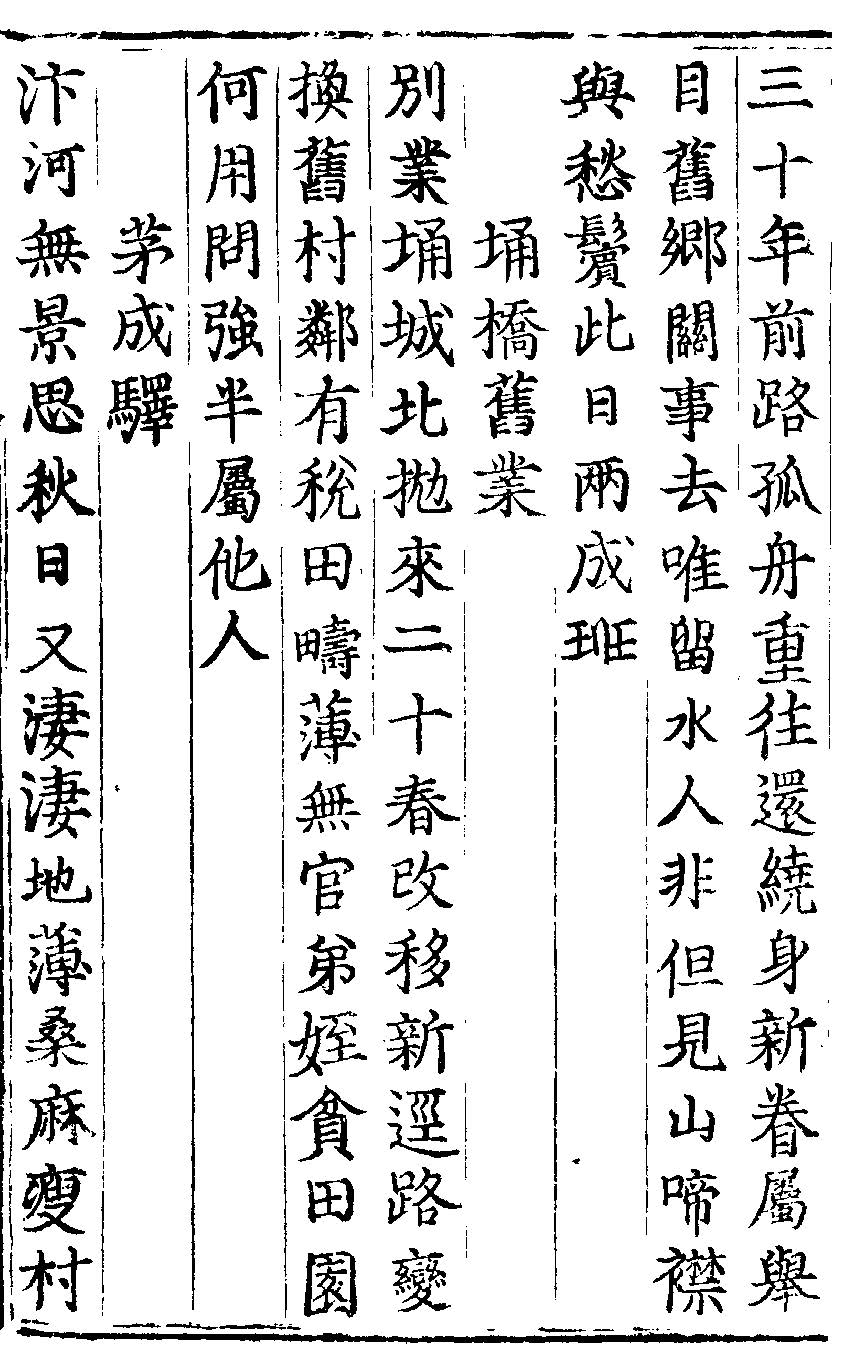 三十年前路孤舟重往還繞身新眷屬舉
目舊郷關事去唯留水人非但見山啼襟
與愁鬢此日兩成班
埇橋舊業
別業埇城北拋來二十春改移新逕路變
換舊村鄰有稅田疇薄無官弟姪貧田園
何用問強半屬他人
茅成驛
汴河無景思秋日又淒淒地薄桑麻瘦村